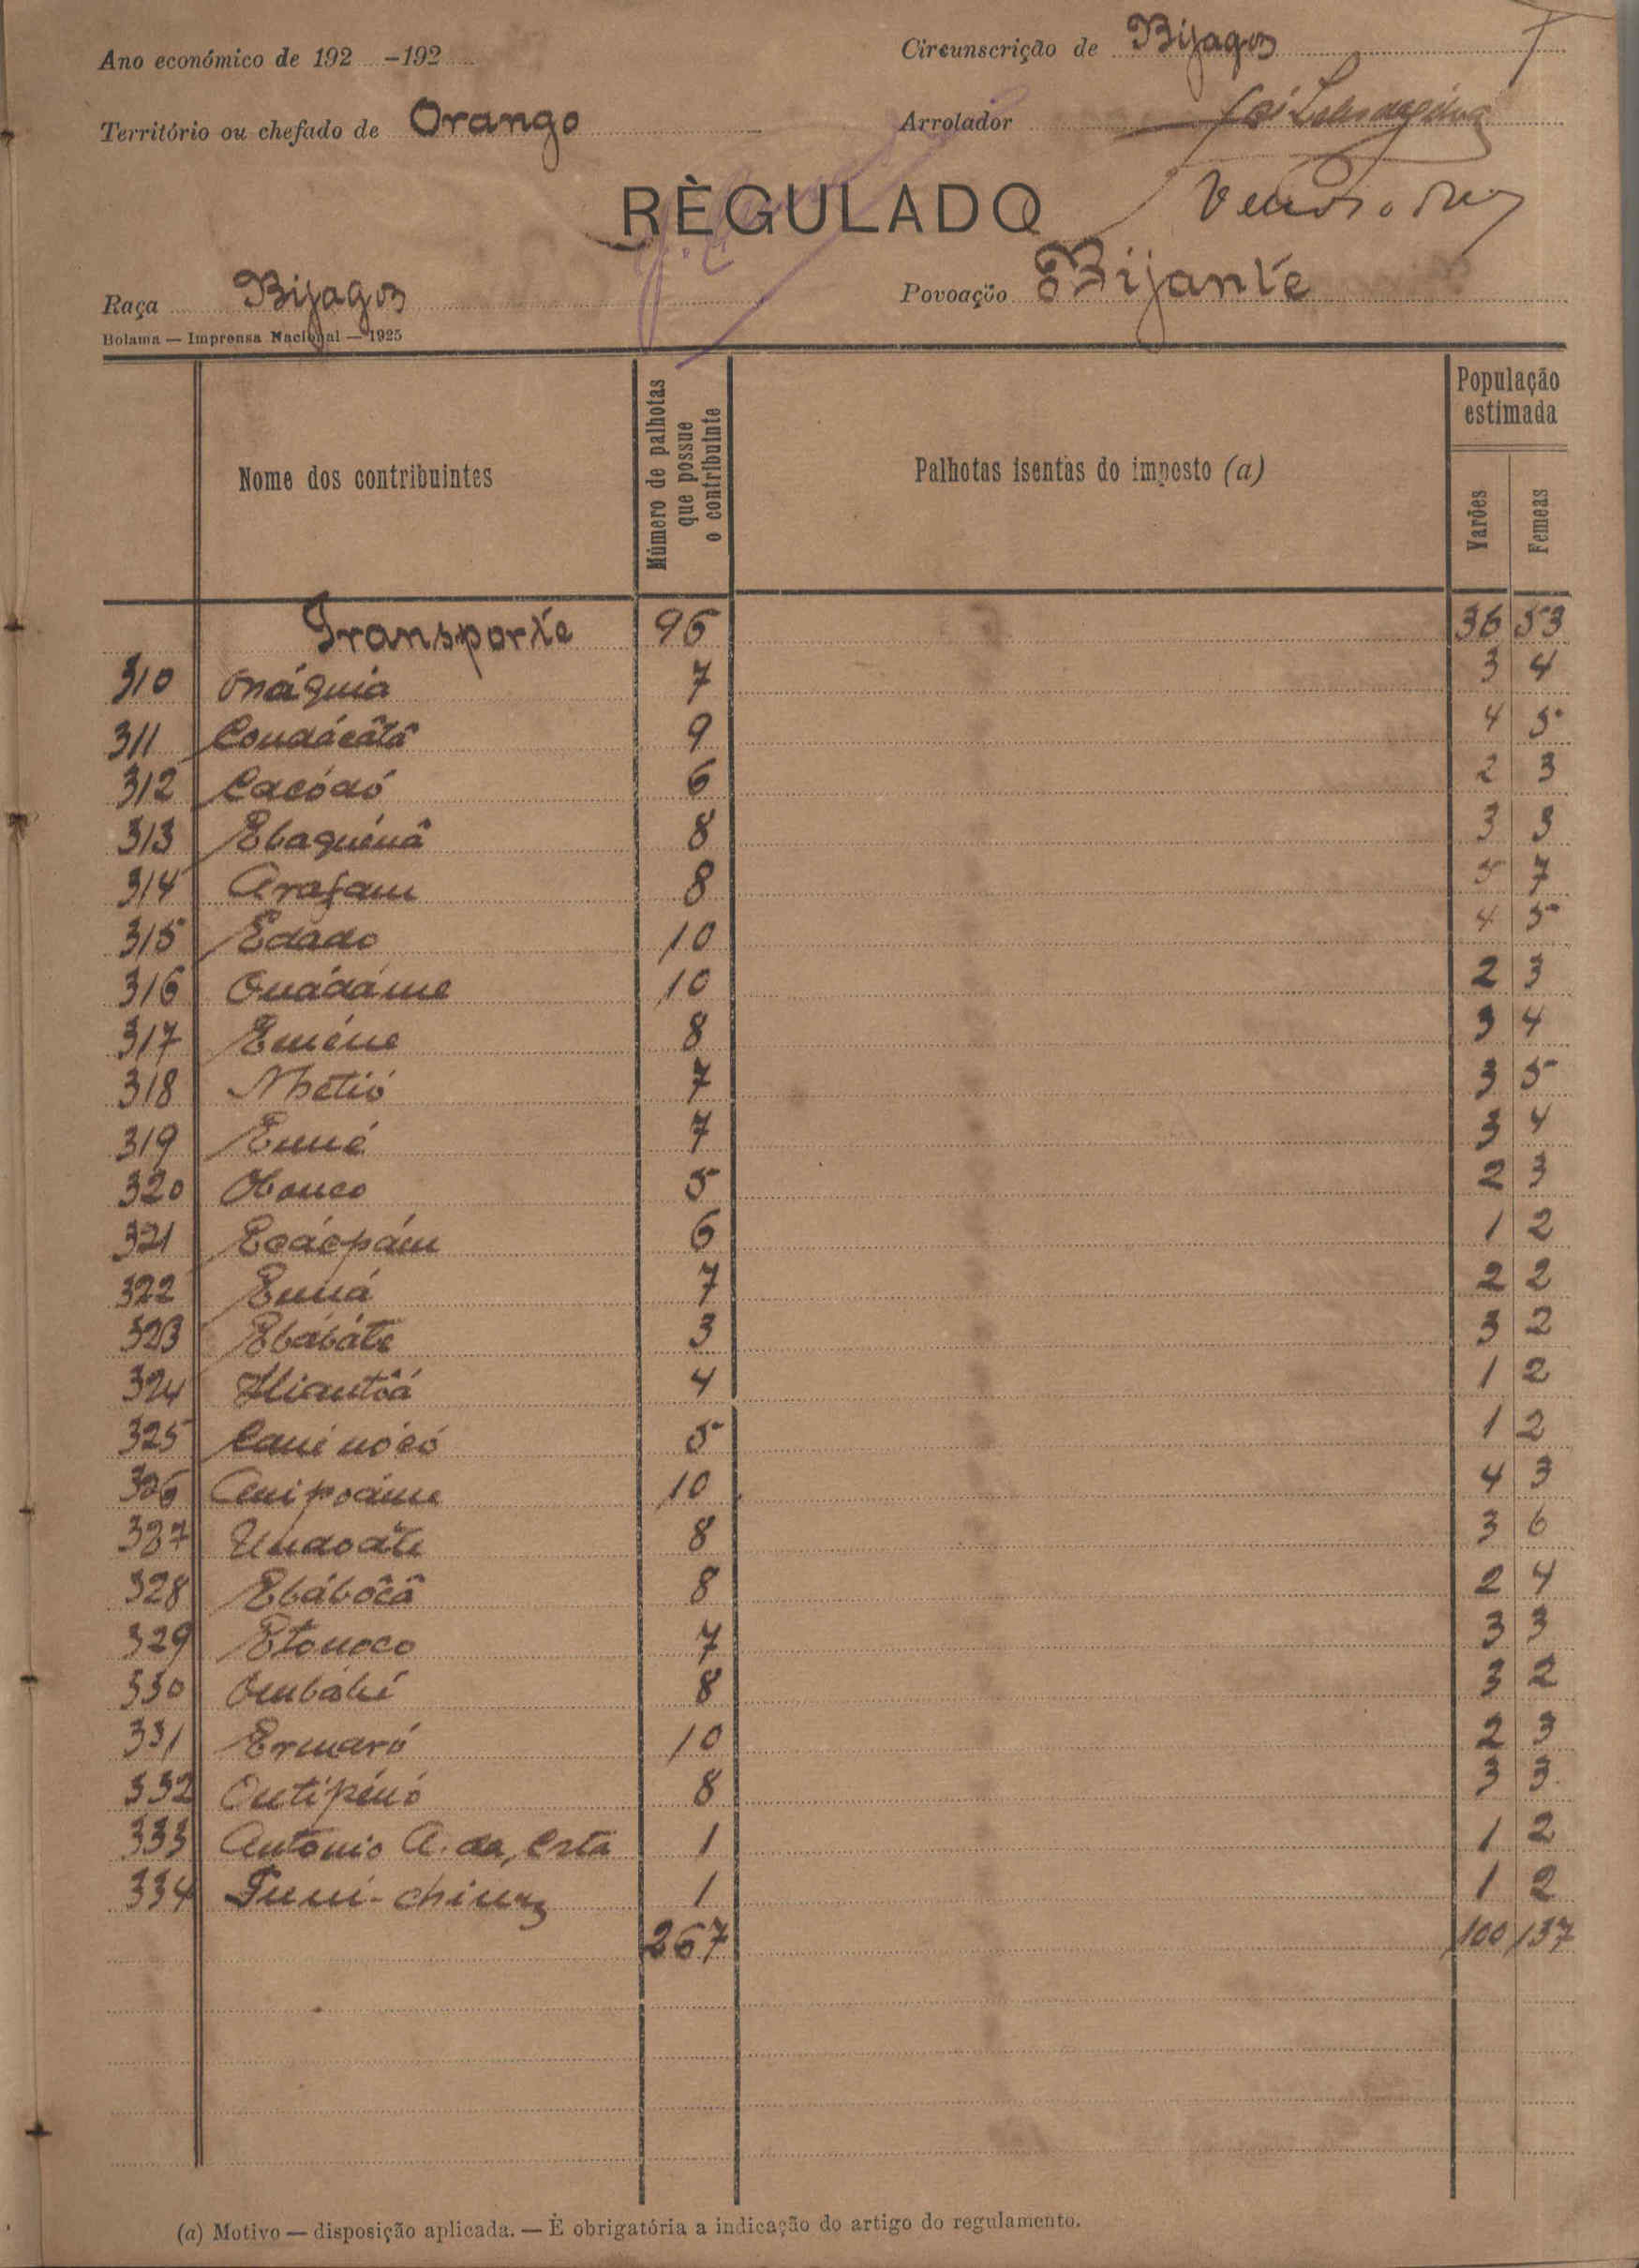 Ano económico de 192 -192
Circunscrição de Bijagoz
Território ou chefado de Orango
Arrolador
RÈGULADO
Raça Bijagoz
Povoação Bijante
Bolama — Imprensa Nacional — 1925
Nome dos contribuintes
Número de palhotas que possue o contribuinte
Palhotas isentas do imposto (a)
População estimada
Varões
Femeas
Transporte 96 36 53
310 Onáquia 7 3 4
311 Coudácâtâ 9 4 5
312 Cacódó 6 2 3
313 Ebaquénâ 8 3 3
314 Arafam 8 5 7
315 Edado 10 4 5
316 Ouádáme 10 2 3
317 Eméne 8 3 4
318 Nhetió 7 3 5
319 7 3 4
320 Obonco 5 2 3
321 Ecácpám 6 1 2
322 7 2 2
323 Ebabáte 3 3 2
324 4 1 2
325 Cani nócó 5 1 2
326 10 4 3
327 Undoáte 8 3 6
328 Ebábôcâ 8 2 4
329 Etonoco 7 3 3
330 8 3 2
331 Ermaró 10 2 3
332 Outipénó 8 3 3
333 Antonio A. da Csta 1 1 2
334 1 1 2
267 100 137
(a) Motivo — disposição aplicada. — É obrigatória a indicação do artigo do regulamento.